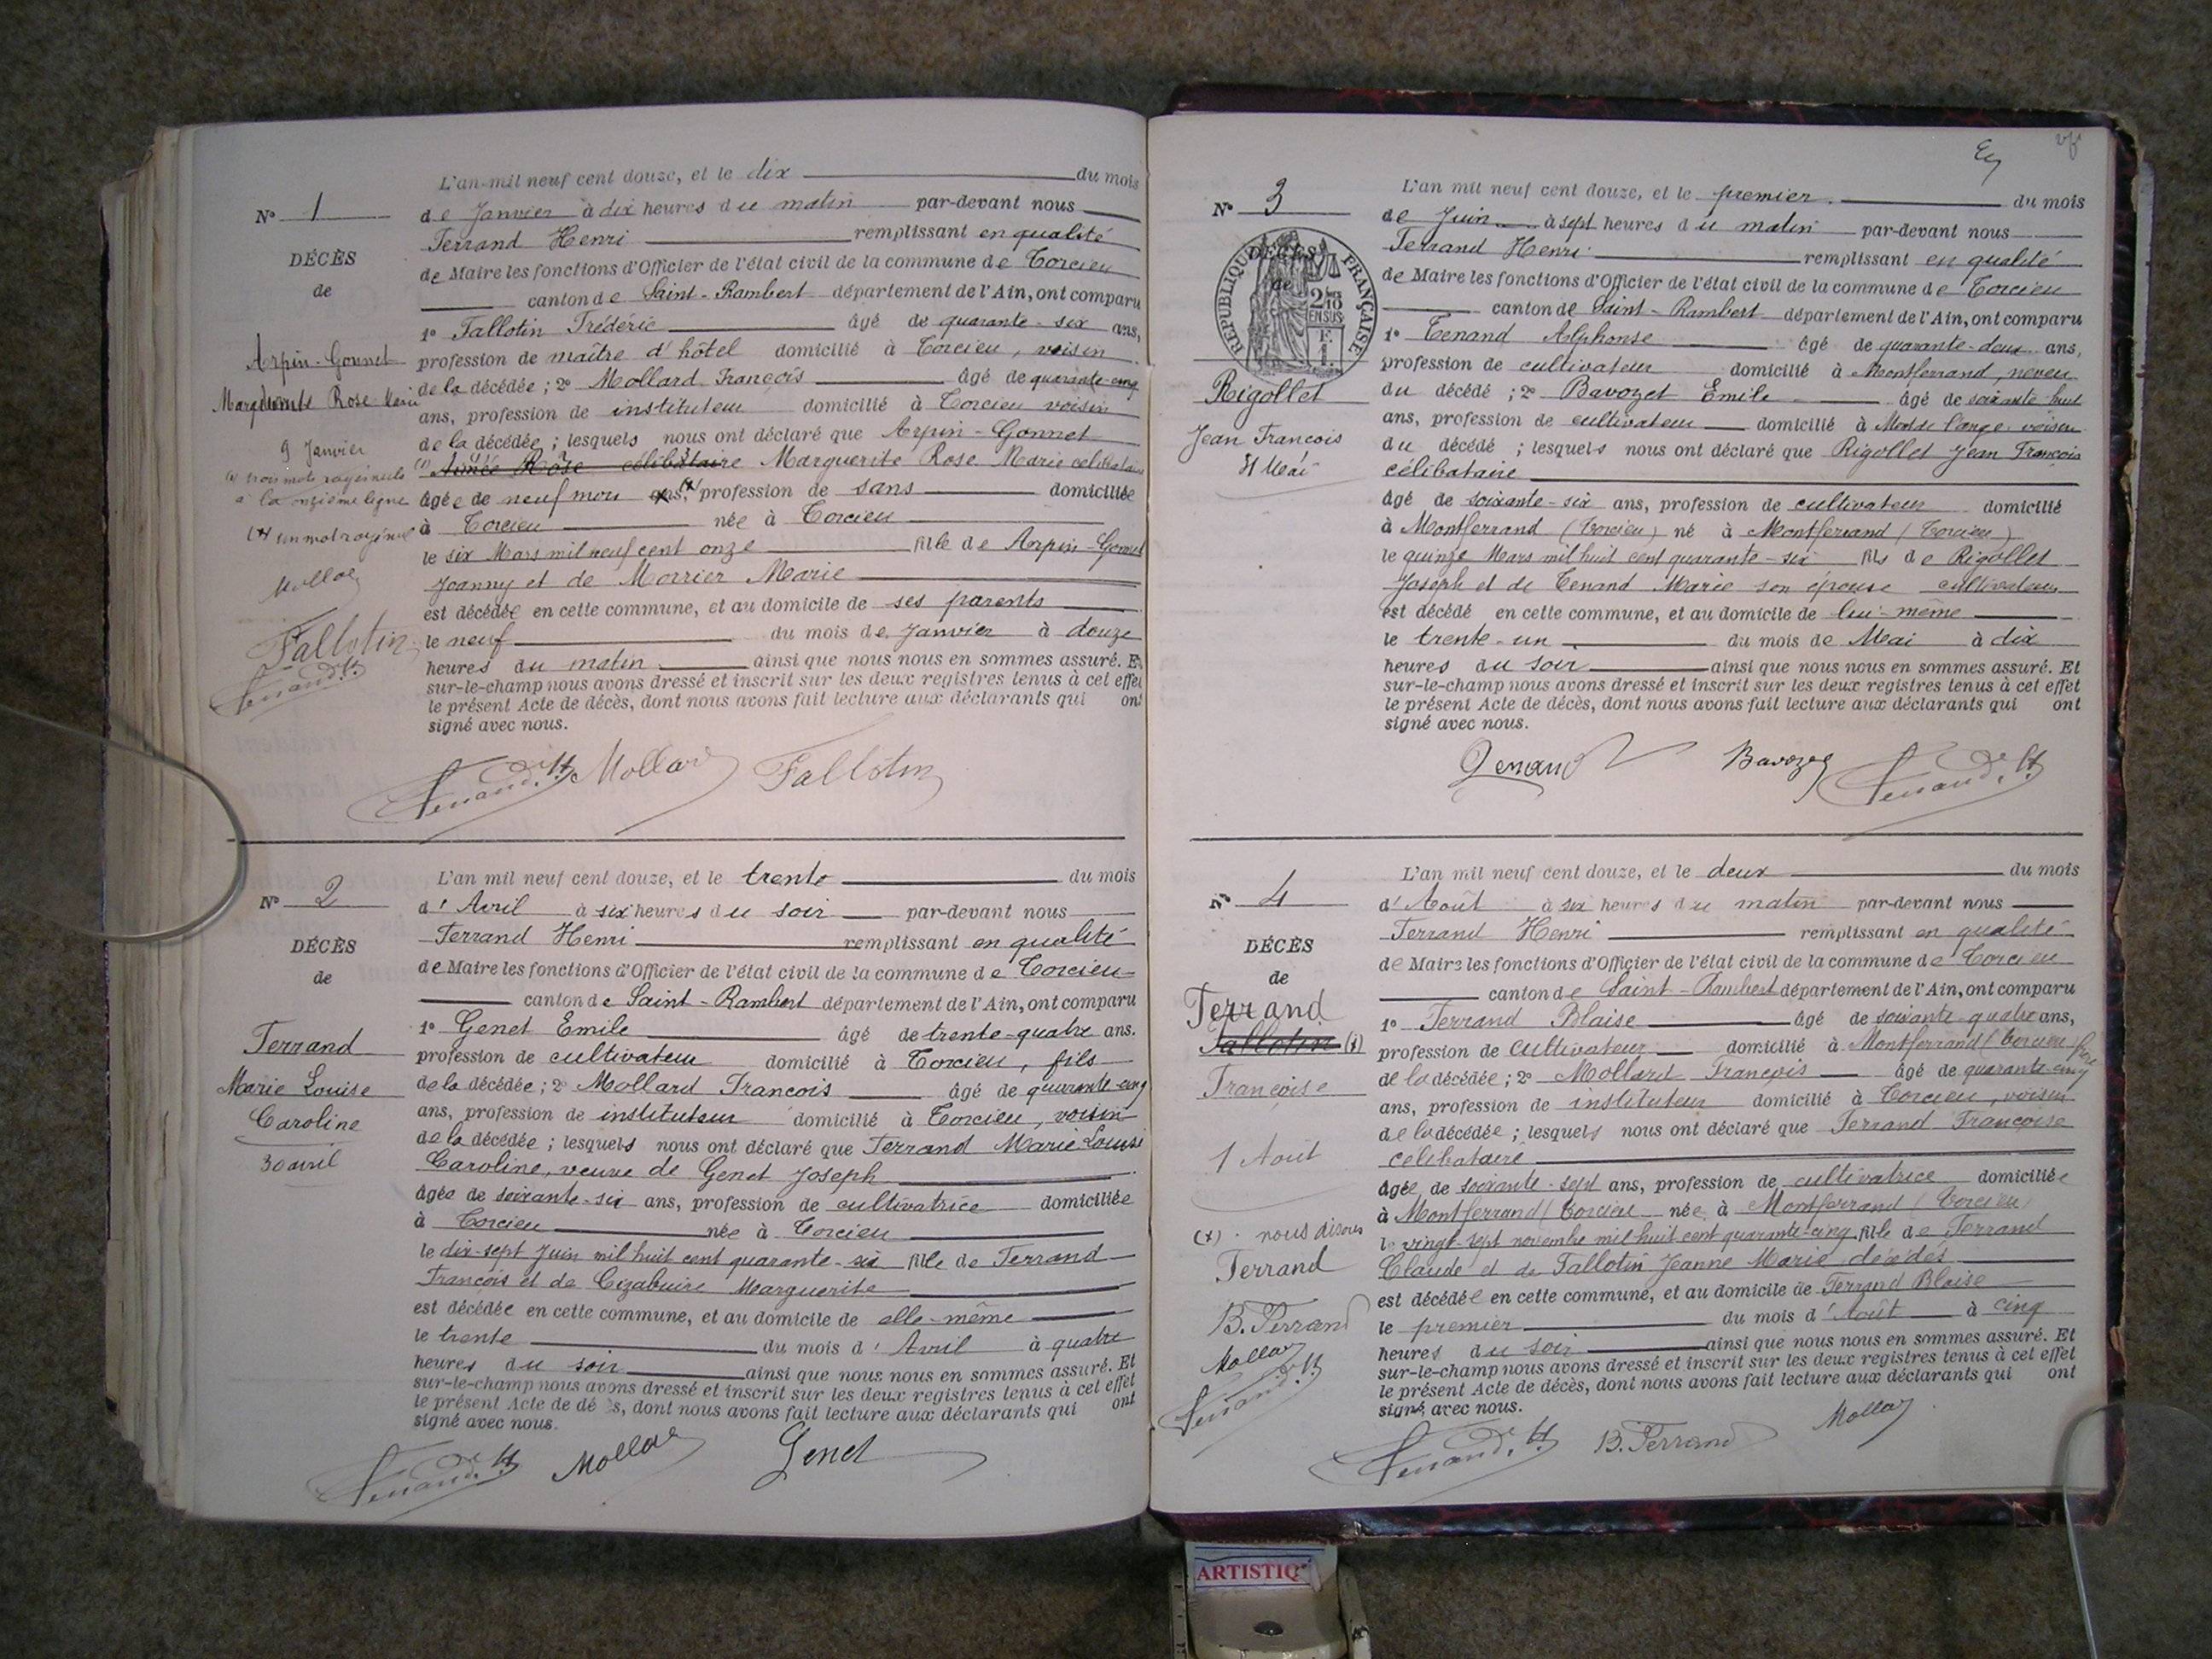 L'an mil neuf cent douze, et le dix du mois
N° 1
de Janvier à dix heures du matin par-devant nous
Ferrand Henri remplissant en qualité
DÉCÈS
de
de Maire les fonctions d'Officier de l'état civil de la commune de Torcieu
canton de Saint-Rambert département de l'Ain, ont comparu
1° Fallotin Frédéric âgé de quarante-six ans,
Arpin-Gonnet
Marguerite Rose Marie
profession de maître d'hôtel domicilié à Torcieu, voisin
de la décédée ; 2° Mollard François âgé de quarante-cinq
ans, profession de instituteur domicilié à Torcieu voisin
de la décédée ; lesquels nous ont déclaré que Arpin-Gonnet
Aimée Rose célibataire Marguerite Rose Marie célibataire
9 Janvier
trois mots rayés nuls
à la onzième ligne
un mot rayé nul
Mollard
Fallotin
Ferrand H
âgée de neuf mois ans, profession de sans domiciliée
à Torcieu née à Torcieu
le six Mars mil neuf cent onze fille de Arpin-Gonnet
Joanny et de Morrier Marie
est décédée en cette commune, et au domicile de ses parents
le neuf du mois de Janvier à douze
heures du matin ainsi que nous nous en sommes assuré. Et
sur-le-champ nous avons dressé et inscrit sur les deux registres tenus à cet effet
le présent Acte de décès, dont nous avons fait lecture aux déclarants qui ont
signé avec nous.
Ferrand H Mollard Fallotin
L'an mil neuf cent douze, et le trente du mois
N° 2
d'Avril à six heures du soir par-devant nous
Ferrand Henri remplissant en qualité
DÉCÈS
de
de Maire les fonctions d'Officier de l'état civil de la commune de Torcieu
canton de Saint-Rambert département de l'Ain, ont comparu
1° Genet Emile âgé de trente-quatre ans.
Ferrand
Marie Louise
Caroline
30 avril
profession de cultivateur domicilié à Torcieu, fils
de la décédée ; 2° Mollard François âgé de quarante-cinq
ans, profession de instituteur domicilié à Torcieu, voisin
de la décédée ; lesquels nous ont déclaré que Ferrand Marie Louise
Caroline, veuve de Genet Joseph
âgée de soixante-six ans, profession de cultivatrice domiciliée
à Torcieu née à Torcieu
le dix-sept Juin mil huit cent quarante-six fille de Ferrand
François et de Cizabuire Marguerite
est décédée en cette commune, et au domicile de elle-même
le trente du mois d'Avril à quatre
heures du soir ainsi que nous nous en sommes assuré. Et
sur-le-champ nous avons dressé et inscrit sur les deux registres tenus à cet effet
le présent Acte de décès, dont nous avons fait lecture aux déclarants qui ont
signé avec nous.
Ferrand H Mollard Genet
L'an mil neuf cent douze, et le premier du mois
N° 3
de Juin à sept heures du matin par-devant nous
Ferrand Henri remplissant en qualité
DÉCÈS
de
RÉPUBLIQUE FRANÇAISE
2/10 EN SUS
de Maire les fonctions d'Officier de l'état civil de la commune de Torcieu
canton de Saint-Rambert département de l'Ain, ont comparu
1° Tenand Alphonse âgé de quarante-deux ans,
Rigollet
Jean François
31 Mai
profession de cultivateur domicilié à Montferrand, neveu
du décédé ; 2° Bavozet Emile âgé de soixante huit
ans, profession de cultivateur domicilié à Mont de Lange voisin
du décédé ; lesquels nous ont déclaré que Rigollet Jean François
célibataire
âgé de soixante-six ans, profession de cultivateur domicilié
à Montferrand (Torcieu) né à Montferrand (Torcieu)
le quinze Mars mil huit cent quarante-six fils de Rigollet
Joseph et de Tenand Marie son épouse cultivateurs
est décédé en cette commune, et au domicile de lui-même
le trente-un du mois de Mai à dix
heures du soir ainsi que nous nous en sommes assuré. Et
sur-le-champ nous avons dressé et inscrit sur les deux registres tenus à cet effet
le présent Acte de décès, dont nous avons fait lecture aux déclarants qui ont
signé avec nous.
Tenand Bavozet Ferrand H
L'an mil neuf cent douze, et le deux du mois
N° 4
d'Août à six heures du matin par-devant nous
Ferrand Henri remplissant en qualité
DÉCÈS
de
de Maire les fonctions d'Officier de l'état civil de la commune de Torcieu
canton de Saint-Rambert département de l'Ain, ont comparu
1° Ferrand Blaise âgé de soixante-quatre ans,
Ferrand
Fallotin (x)
Françoise
1 Août
profession de cultivateur domicilié à Montferrand (Torcieu) frère
de la décédée ; 2° Mollard François âgé de quarante-cinq
ans, profession de instituteur domicilié à Torcieu, voisin
de la décédée ; lesquels nous ont déclaré que Ferrand Françoise
célibataire
âgée de soixante-sept ans, profession de cultivatrice domiciliée
à Montferrand (Torcieu née à Montferrand (Torcieu)
le vingt-sept novembre mil huit cent quarante-cinq fille de Ferrand
Claude et de Fallotin Jeanne Marie décédés
est décédée en cette commune, et au domicile de Ferrand Blaise
le premier du mois d'Août à cinq
heures du soir ainsi que nous nous en sommes assuré. Et
sur-le-champ nous avons dressé et inscrit sur les deux registres tenus à cet effet
le présent Acte de décès, dont nous avons fait lecture aux déclarants qui ont
signé avec nous.
(x) nous disons
Ferrand
B. Ferrand
Mollard
Ferrand H
Ferrand H B. Ferrand Mollard
ARTISTIQ